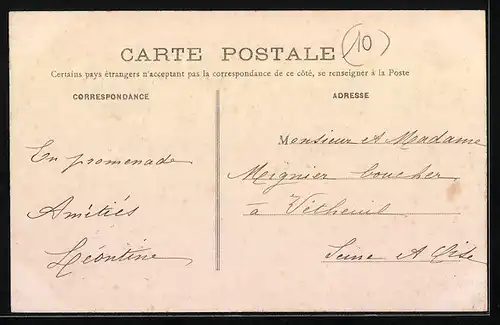 CARTE POSTALE
(10)
Certains pays étrangers n'acceptant pas la correspondance de ce côté, se renseigner à la Poste
CORRESPONDANCE
En promenade
Amitiés
Léontine
ADRESSE
Monsieur et Madame
Meignier boucher
à Vétheuil
Seine et Oise